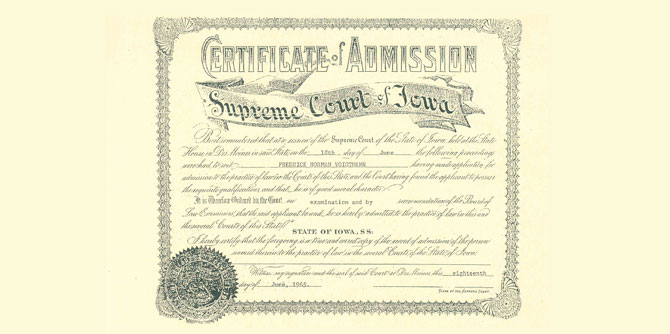 CERTIFICATE of ADMISSION
Supreme Court of Iowa
Be it remembered that at a session of the Supreme Court of the State of Iowa, held at the State
House, in Des Moines in said State on the 18th day of June the following proceedings
were had, to wit: FREDRICK NORMAN VOIGTMANN having made application for
admission to the practice of law in the Courts of this State, and the Court having found the applicant to possess
the requisite qualifications, and that he is of good moral character.
It is Therefore Ordered by the Court, on examination and by recommendation of the Board of
Law Examiners, that the said applicant be and he is hereby admitted to the practice of law in this and
the several Courts of this State.
STATE OF IOWA, SS:
I hereby certify that the foregoing is a true and correct copy of the record of admission of the person
named therein to the practice of law in the several Courts of the State of Iowa.
Witness my signature and the seal of said Court at Des Moines this eighteenth
day of June, 1965.
CLERK OF THE SUPREME COURT